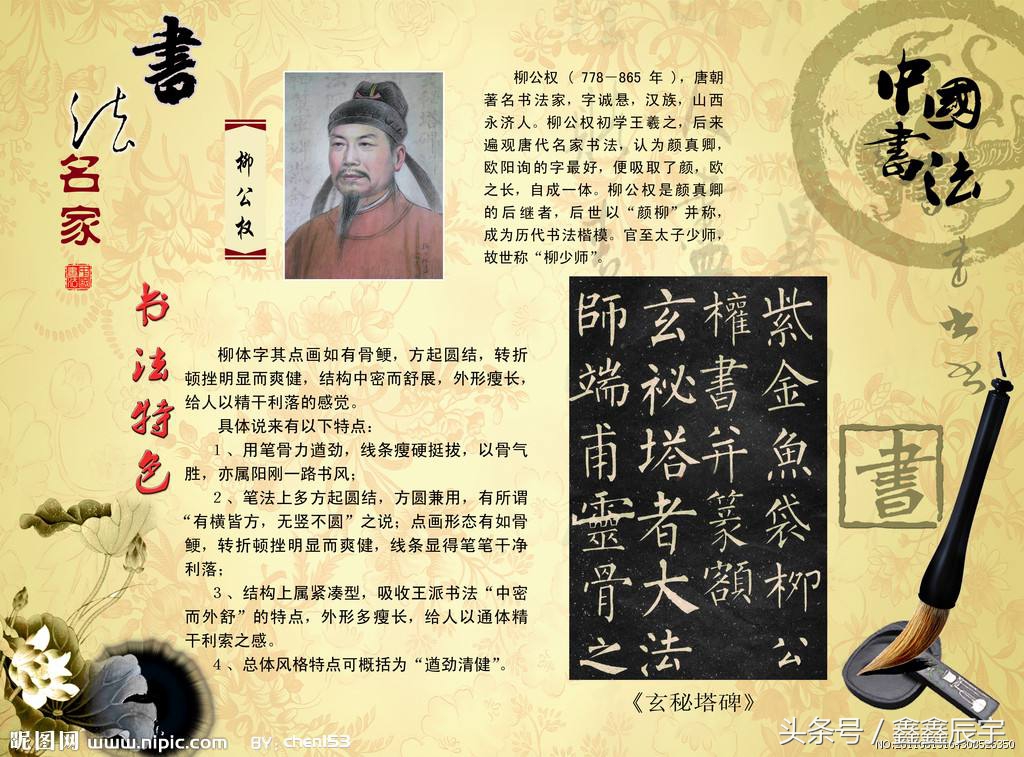 書
法
名
家
柳公权
柳公权（778－865 年），唐朝
著名书法家，字诚悬，汉族，山西
永济人。柳公权初学王羲之，后来
遍观唐代名家书法，认为颜真卿，
欧阳询的字最好，便吸取了颜，欧
之长，自成一体。柳公权是颜真卿
的后继者，后世以“颜柳”并称，
成为历代书法楷模。官至太子少师，
故世称“柳少师”。
中國
書法
书法特色
柳体字其点画如有骨鲠，方起圆结，转折
顿挫明显而爽健，结构中密而舒展，外形瘦长，
给人以精干利落的感觉。
具体说来有以下特点：
1、用笔骨力遒劲，线条瘦硬挺拔，以骨气
胜，亦属阳刚一路书风；
2、笔法上多方起圆结，方圆兼用，有所谓
“有横皆方，无竖不圆”之说；点画形态有如骨
鲠，转折顿挫明显而爽健，线条显得笔笔干净
利落；
3、结构上属紧凑型，吸收王派书法“中密
而外舒”的特点，外形多瘦长，给人以通体精
干利索之感。
4、总体风格特点可概括为“遒劲清健”。
紫金魚袋柳公
權書并篆額
玄祕塔者大法
師端甫靈骨之
《玄秘塔碑》
書
昵图网 www.nipic.com BY: chen153
头条号 / 鑫鑫辰宇